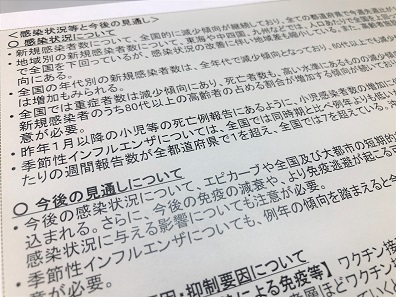 ＜感染状況等と今後の見通し＞
○ 感染状況について
・新規感染者数について、全国的に減少傾向が継続しており、全ての都道府県で今週先週比が
・地域別の新規感染者数は、東海や中四国、九州など
で全国を下回っているが、感染状況の改善に伴い地域差も縮小している。また、
向にある。
・全国の年代別の新規感染者数は、全年代で減少傾向となっており、60代以上で
は増加もみられる。
・全国では重症者数は減少傾向にあり、死亡者数も、高い水準にあるものの減少
新規感染者のうち80代以上の高齢者の占める割合が増加する傾向が続いて
意が必要。
・昨年1月以降の小児等の死亡例報告にあるように、小児感染者数の増加に
・季節性インフルエンザについては、全国では同時期と比べ例年よりも
たりの週間報告数が全都道府県で1を超え、全国では7を超えている。
○ 今後の見通しについて
・今後の感染状況について、エピカーブや全国及び大都市の短期的
込まれる。さらに、今後の免疫の減衰や、より免疫逃避が起こる可
感染状況に与える影響についても注意が必要。
・季節性インフルエンザについても、例年の傾向を踏まえると今
意が必要。
因・抑制要因について
による免疫等】ワクチン接
層ほどワクチン接